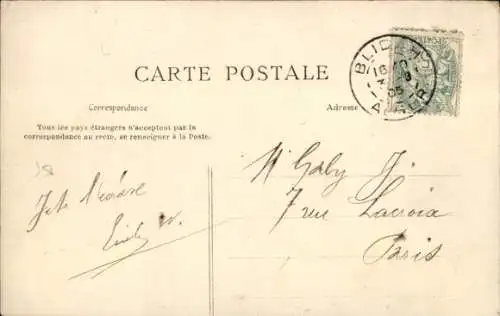 CARTE POSTALE
Correspondance
Adresse
Tous les pays étrangers n'acceptent pas la
correspondance au recto, se renseigner à la Poste.
BLIDAH
ALGER
Je t'écrirai
Emile W.
M. Gaby
7 rue Lacroix
Paris